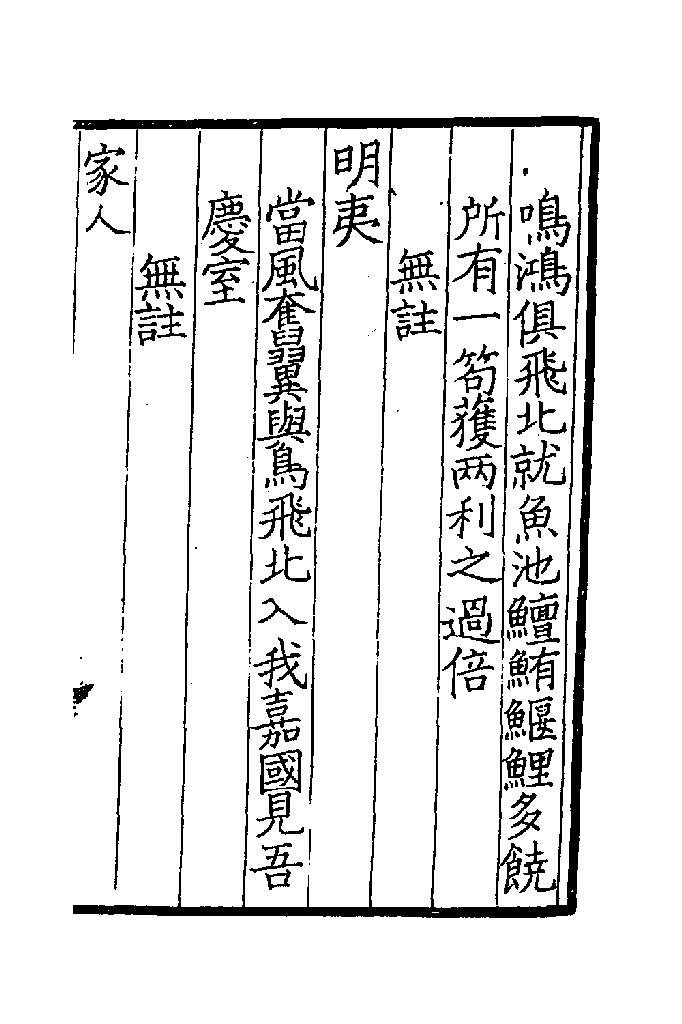 鳴鴻俱飛北就魚池鱣鮪鰋鯉多饒
所有一笱獲两利之過倍
無註
明夷
當風奮翼與鳥飛北入我嘉國見吾
慶室
無註
家人